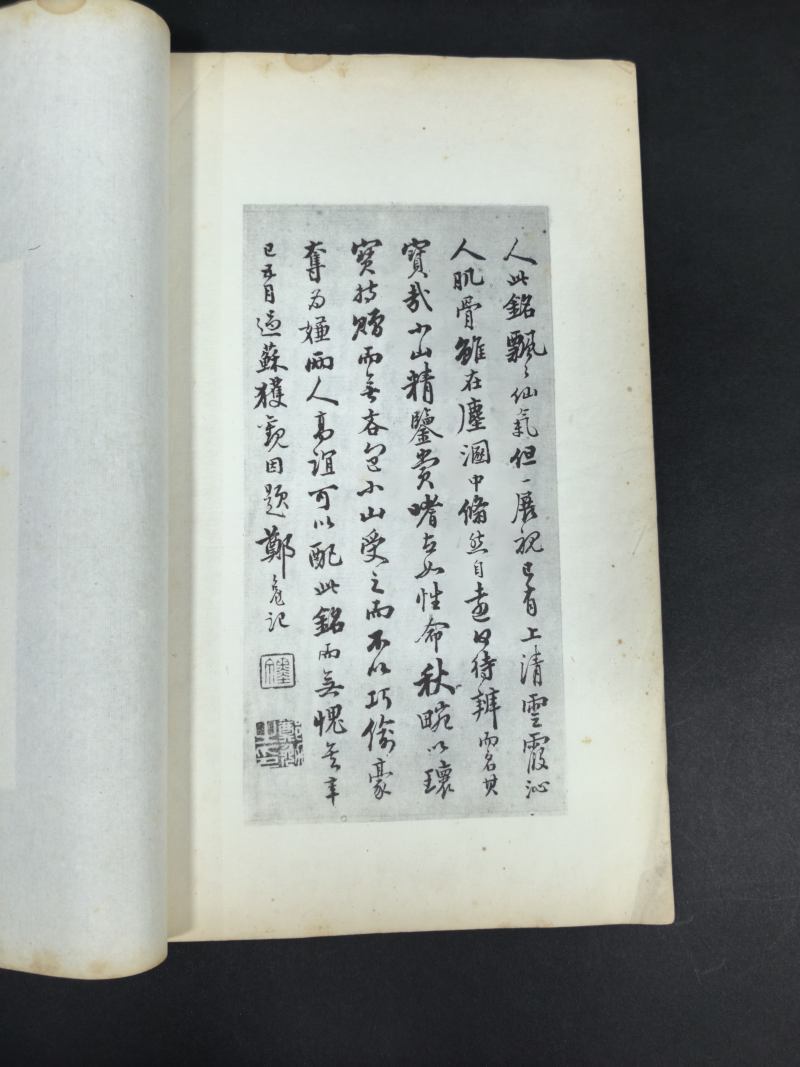 人此銘飄〻仙氣但一展視已有上清雲霞沁
人肌骨雖在塵溷中翛然自遠何待辨而名其
寶哉小山精鑒賞嗜古如性命秋畹以瓌
寶持贈而無吝色小山受之而不以巧偷豪
奪為嫌兩人高誼可以配此銘而無愧矣辛
巳五月過蘇獲觀因題鄭 記